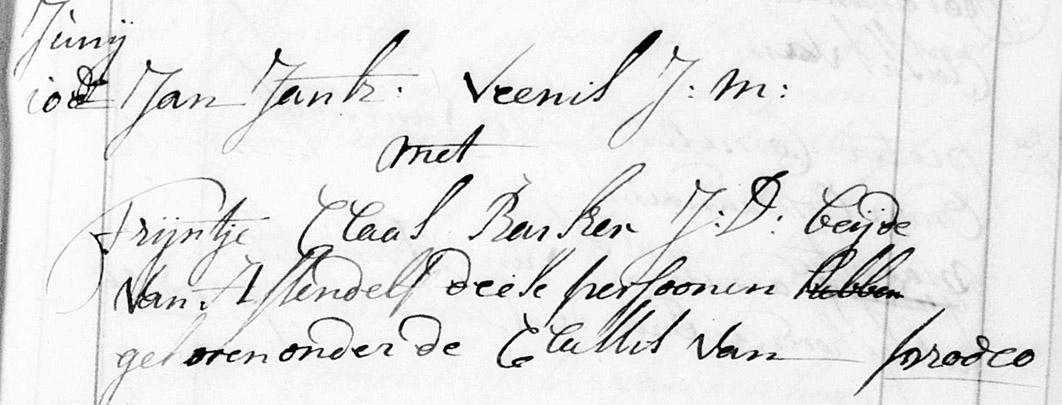 Junij
10de Jan Jantz. Veenis J: M:
met
Trijntje Claas Banker J: D: beijde
van Assendelf deese persoonen hebben
gehooren onder de Classis van prodeo